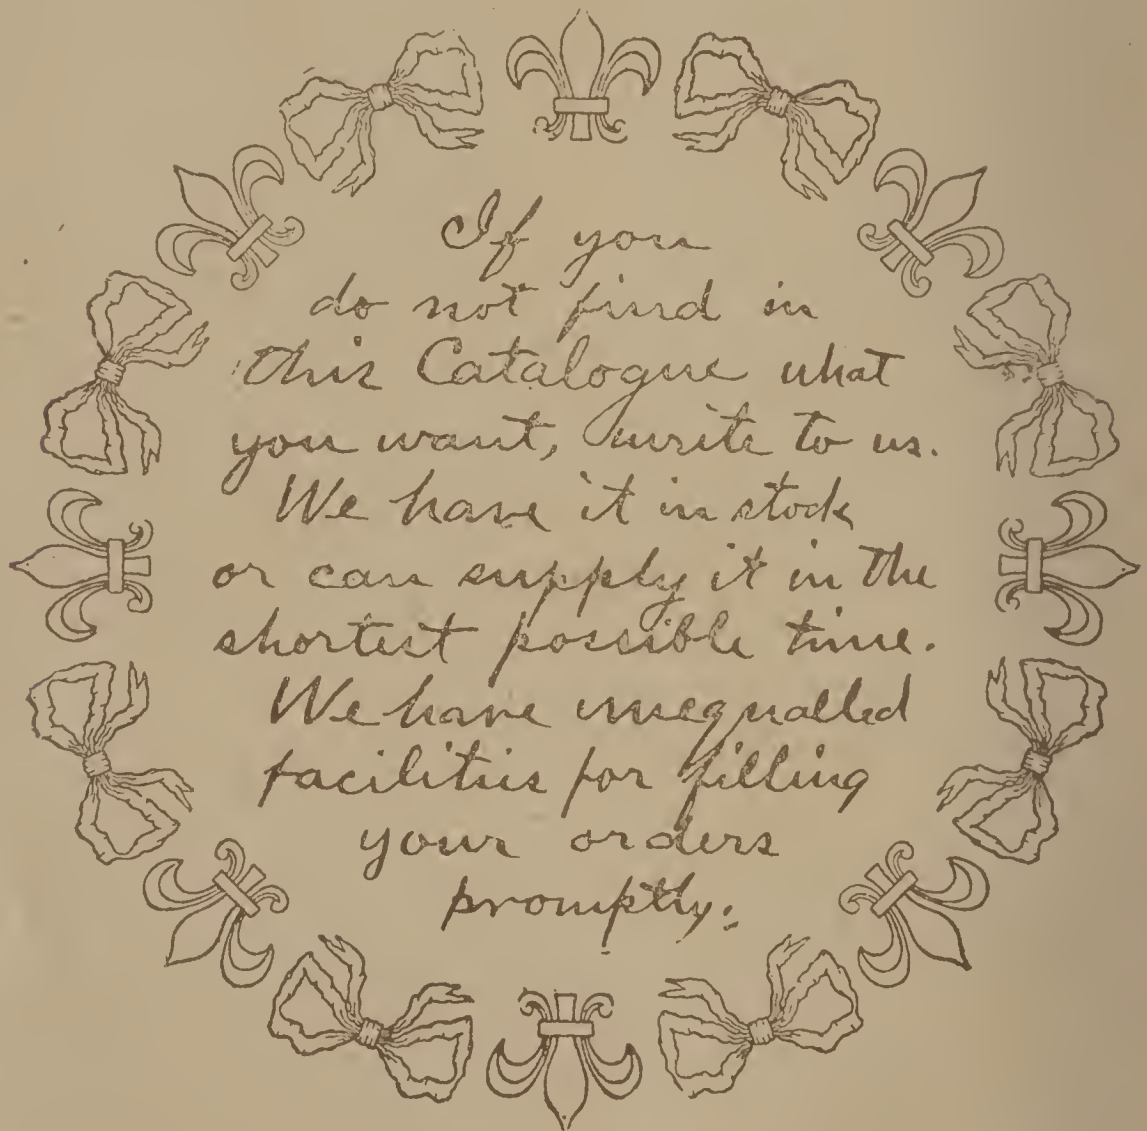 If you
do not find in
this Catalogue what
you want, write to us.
We have it in stock
or can supply it in the
shortest possible time.
We have unequalled
facilities for filling
your orders
promptly.